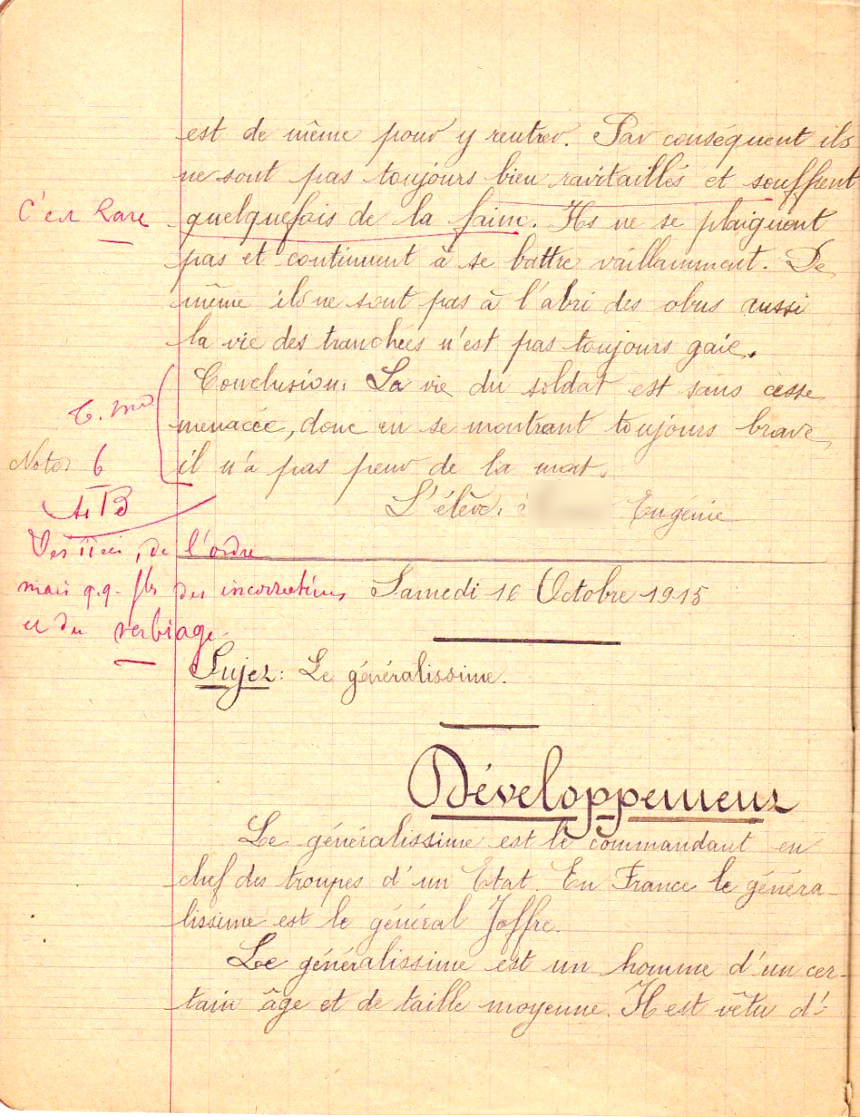 est de même pour y rentrer. Par conséquent ils
ne sont pas toujours bien ravitaillés et souffrent
C'est Rare
quelquefois de la faim. Ils ne se plaignent
pas et continuent à se battre vaillamment. De
même ils ne sont pas à l'abri des obus aussi
la vie des tranchées n'est pas toujours gaie.
Conclusion: La vie du soldat est sans cesse
menacée, donc en se montrant toujours brave
Note: 6
il n'a pas peur de la mort.
L'élève: Eugénie
AB
Des idées, de l'ordre
mais q.q. fois des incorrections
et du verbiage.
Samedi 16 Octobre 1915
Sujet: Le généralissime.
Développement
Le généralissime est le commandant en
chef des troupes d'un Etat. En France le généra-
lissime est le général Joffre.
Le généralissime est un homme d'un cer-
tain âge et de taille moyenne. Il est vêtu d'-